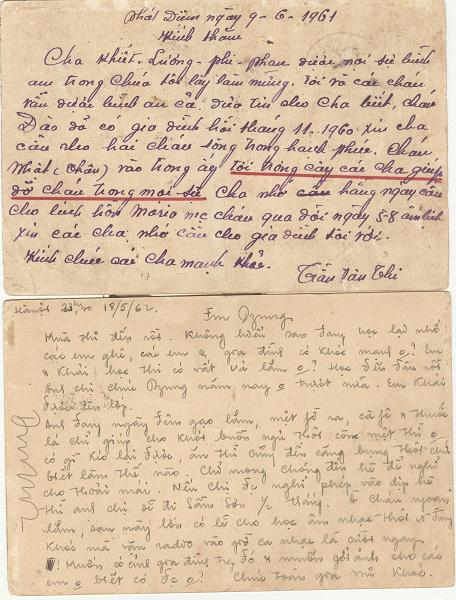 Phát Diệm ngày 9-6-1961
Kính thăm
Cha Khiết-Lương-phi-phan được mọi sự bình
an trong Chúa tôi lấy làm mừng. Tôi và các cháu
vẫn được bình an cả. đưa tin cho Cha biết, cháu
Đào đã có gia đình hồi tháng 11.1960 xin cha
cầu cho hai cháu sống trong hạnh phúc. Cháu
Nhật (Chân) vào trong ấy tôi trông cậy các cha giúp
đỡ cháu trong mọi sự Cha nhớ hằng ngày cầu
cho linh hồn Maria mẹ cháu qua đời ngày 5-8 âm lịch
xin các cha nhớ cầu cho gia đình tôi với.
Kính chúc các Cha mạnh khỏe.
Trần Văn Thi
Hànội 18/5/62.
Em Dzung
Mùa thi đến rồi. Không hiểu sao Jang học lại nhớ
các em ghê, các em & gia đình có khỏe mạnh o? Em
& Khải học thi có vất vả lắm o? Học đến đâu rồi
Anh chỉ chúc Dzung năm nay o trượt nữa. Em Khải
được lên lớp.
Anh Jang ngày đêm gạo lắm, mệt fờ ra, cà fê & thuốc
lá chỉ giúp cho khỏi buồn ngủ thôi còn mệt thì o
có gì kéo lại được, ăn thì cũng đến căng bụng thôi chứ
biết làm thế nào. Chỉ mong chóng đến hè để nghỉ
cho thoải mái. Nếu chỉ fc nghỉ phép vào dịp hè
thì anh chị sẽ đi Sầm Sơn 1/2 tháng. A cháu ngoan
lắm, sau này lớn có lẽ cho học âm nhạc thôi vì Jang
khóc mà vặn radio vào giờ ca nhạc là cười ngay
! Muốn có ảnh gia đình & muốn gởi ảnh cho các
em o biết có fc o? Chúc toàn gia mữ khỏe.